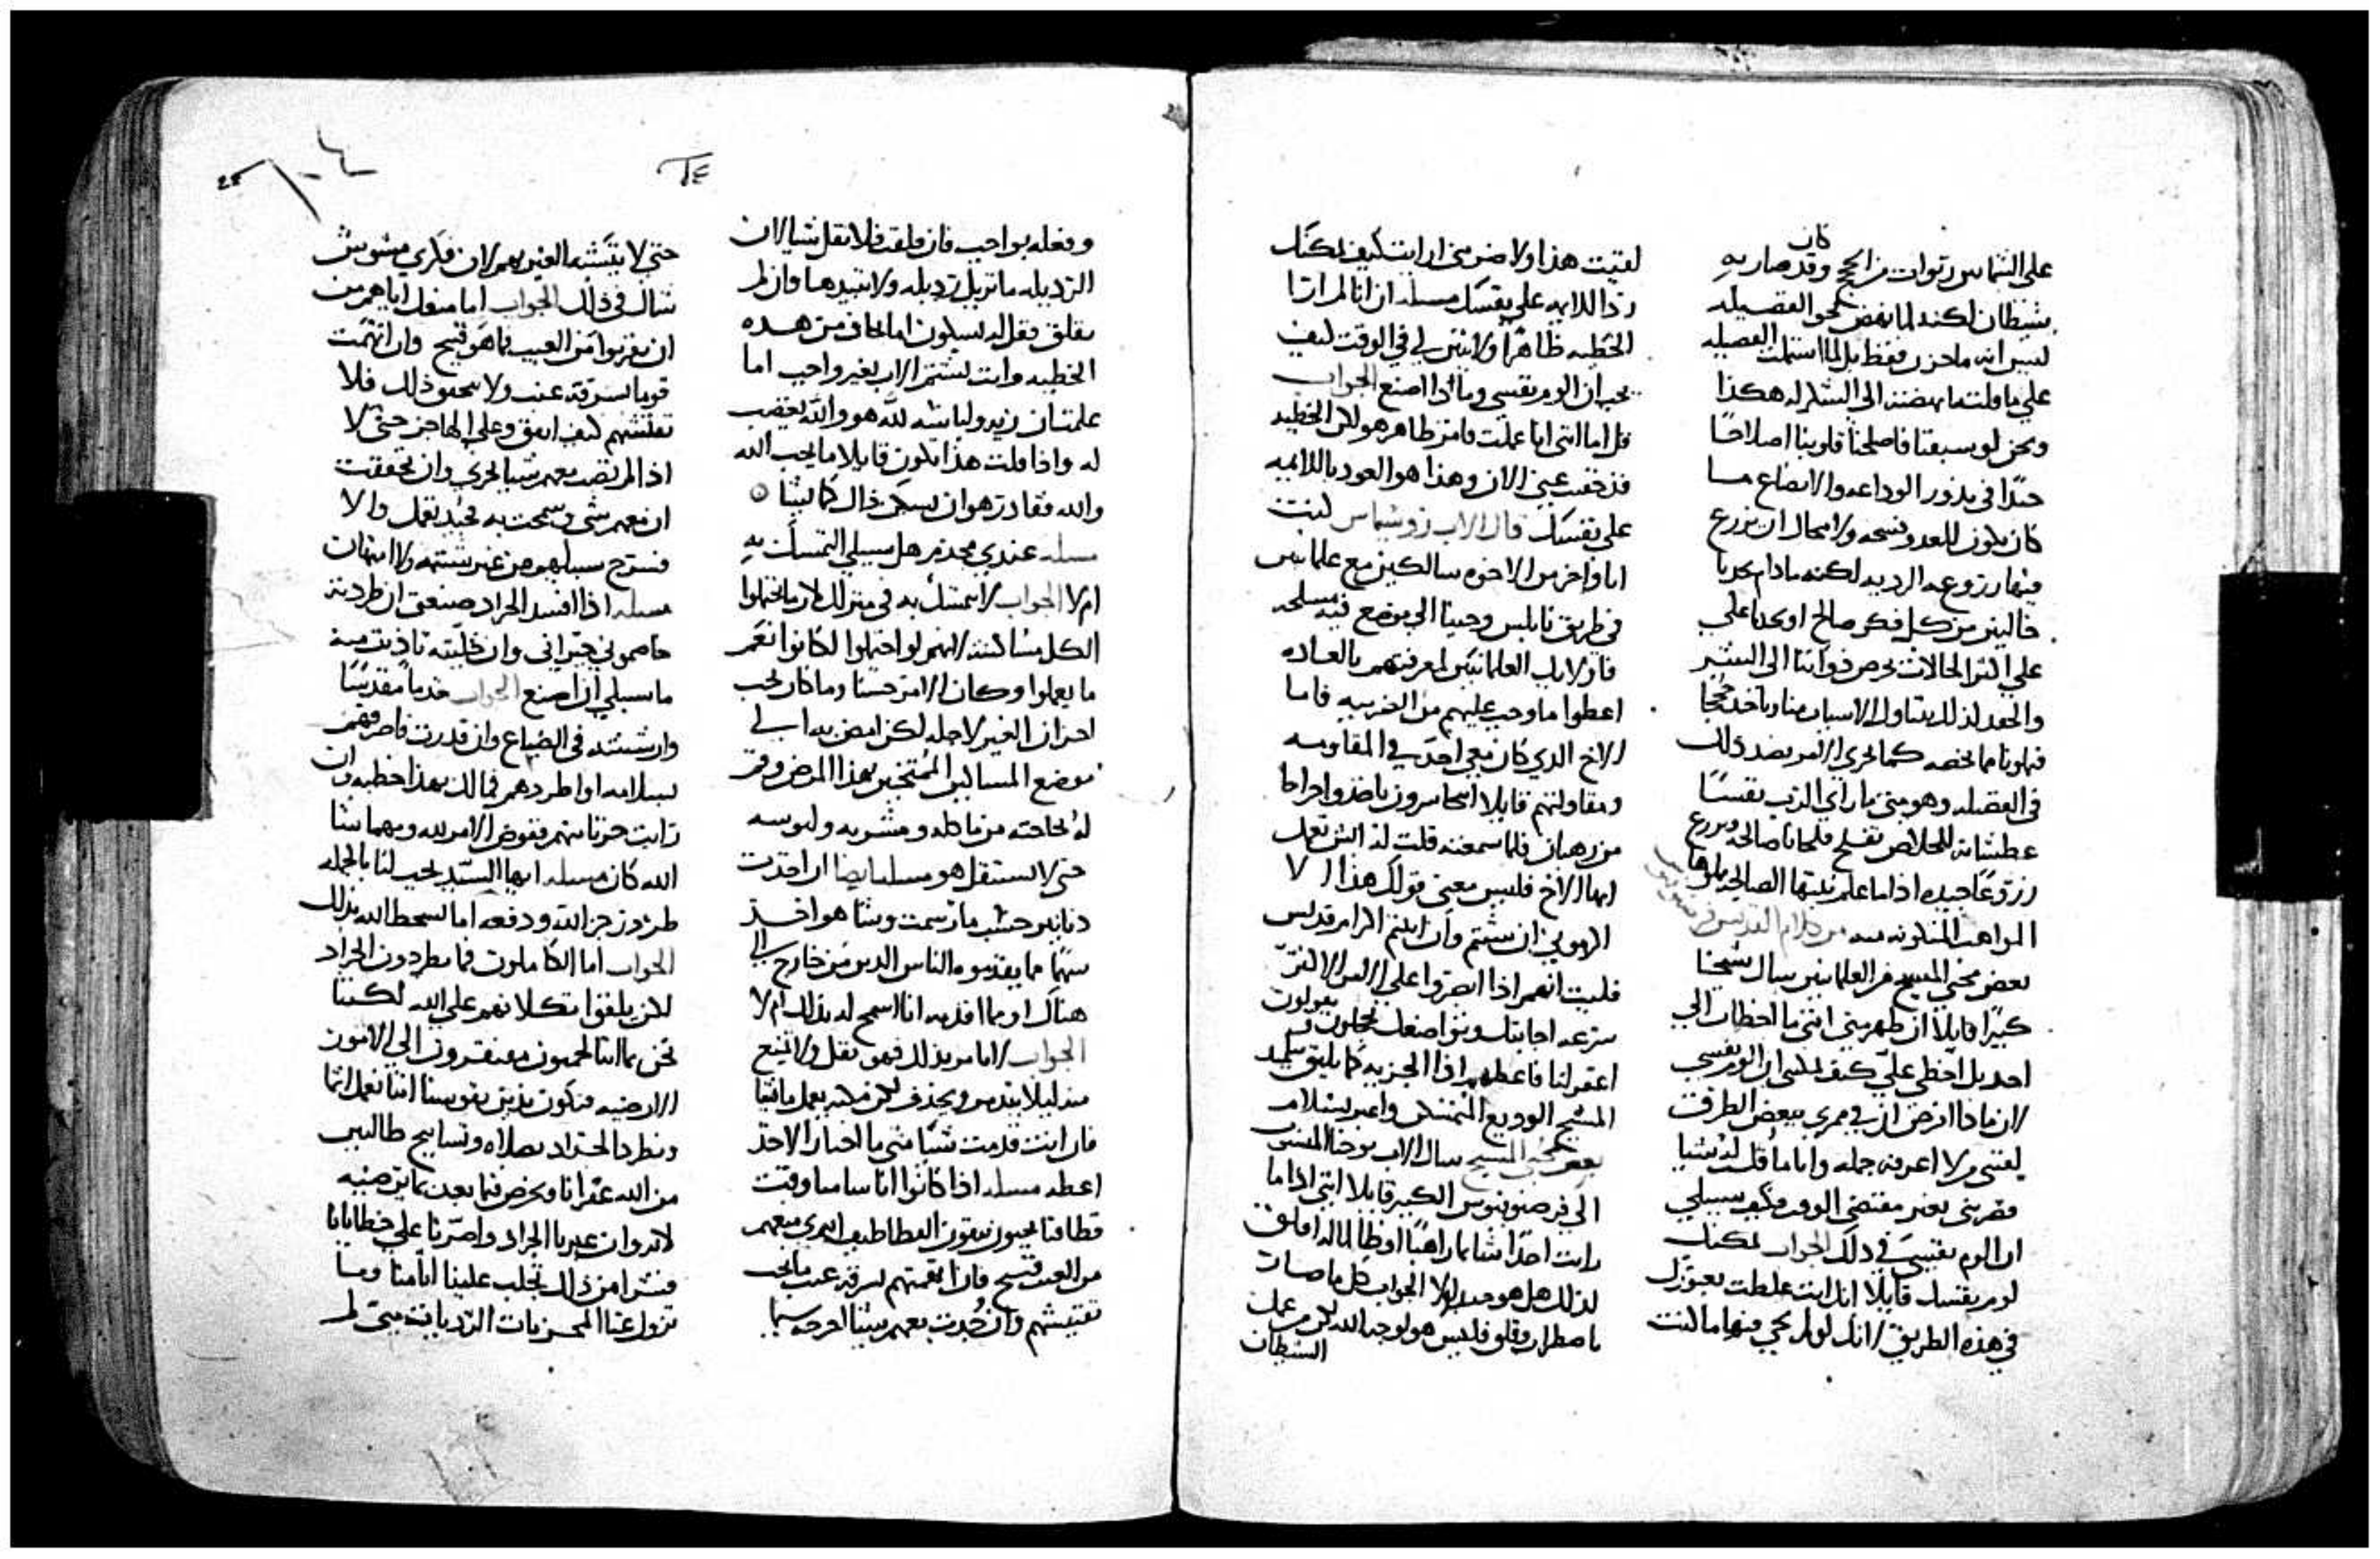 كان
على الشماس رتوات من الحج وقد صار به
شيطان لكنه لما نهض نحو الفضيله
ليس انه ما حزن فقط بل لما استملت الفضيله
علي ما قلت ما نهضت الى الشكر له هكذا
ونحن لو سبقنا فاصلحنا قلوبنا اصلاحًا
جيدًا في بذور الوداعه والاتضاع لما
كان يكون للعدو فسحه ولا مجال ان يزرع
فيها زروعه الرديه لكنه ما دام يجدنا
خاليين من كل فكر صالح او يجدنا علي
علي اكثر الحالات نحرض ذواتنا الى الشر
والحقد لذلك يتناول الاسباب منا وياخد حججا
فهاونا مما يخصه كما يجري الامر بضد ذلك
في الفضيله وهو متي ما راي الرب نفسًا
عطشانه للخلاص تفلح فلحانا صالحه وتزرع
زروعًا جيده اذا ما علم نيتها الصالحه يملوها
المواهب المتكونه منه من كلام القديس برصنوفيوس
بعض محبي المسيح من العلمانيين سال شيخنا
كبيرًا قايلا ان ظهر مني انني ما اخطات الي
احد بل اخطي علي كيف يمكنني ان الوم نفسي
لان ماذا افرض ان في ممري ببعض الطرقت
لقيني من لا اعرفه جمله وانا ما قلت له شيا
فضربني بغير مقتضي الوقت فكيف سبيلي
ان الوم نفسي في ذلك الجواب يمكنك
لوم نفسك قايلا انك انت غلطت بعبورك
في هذه الطريق لانك لو لم تجي فيها ما كنت
لقيت هذا ولا ضربني ارايت كيف يمكنك
رد اللايمه علي نفسك مسله ان انا لم ارا
الخطيه ظاهرًا ولا تبين لي في الوقت كيف
يجب ان الوم نفسي وماذا اصنع الجواب
قل اما انني انا عملت فامر ظاهر هو لكن الخطيه
قد خفيت عني الان وهذا هو العود باللايمه
علي نفسك قال الاب زوسيماس كنت
انا واخر من الاخوه سالكين مع علمانيين
في طريق نابلس وجينا الي موضع فيه مسلحه
فاوليك العلمانيين لمعرفتهم بالعاده
اعطوا ما وجب عليهم من الضريبه فاما
الاخ الذي كان معي اخد في المقاومه
ومقاولتهم قايلا اتجاسرون تاخذوا خراجا
من رهبان فلما سمعته قلت له ايش تعمل
ايها الاخ فليس معني قولك هذا الا
اكرموني ان شيتم وان ابيتم اكرام قديس
فليت انهم اذا ابصروا علي الامر الاكثر
سرعه اجابتك وتواضعك يخجلون ويقولون
اغفر لنا فاعطهم اذا الجزيه كما يليق بتلميذ
المسيح الوديع المتمسكن واعبر بسلام
بعض محبي المسيح سال الاب يوحنا المنسوب
الي برصنوفيوس الكبير قايلا انني اذا ما
رايت احدًا شاتما راهبًا او ظالما له اقلق
لذلك هل هو جيد ام لا الجواب كل ما صار
باضطراب وقلق فليس هو لوجه الله لكن من عمل
الشيطان
وفعله بواجب فان قلقت فلا تقل شيا لان
الرذيله ما تزيل رذيله ولا تبيدها وان لم
تقلق فقل له بسكون اما تخاف من هذه
الخطيه وانت تشتم الاب بغير واجب اما
علمت ان زيه ولباسه لله هو والله يغضب
له واذا قلت هذا تكون قايلا ما يحب الله
والله فقادر هو ان يسكن ذاك كما يشا
مسله عندي مجذم هل سبيلي التمسك به
ام لا الجواب لا تمسك به في منزلك لان ما يحتملوا
الكل مساكنته لانهم لو احتملوا لكانوا نعم
ما يعملوا وكان الامر حسنا وما كان يجب
احزان الغير لاجله لكن امض به الي
موضع المساكين الممتحنين بهذا المرض وقم
له بحاجته من ماكله ومشربه وملبوسه
حتي لا يستثقل هو مسله ايضا ان اخذت
دنانير حسب ما رسمت وشا هو اخذ
سهمًا مما يقدموه الناس الذين من خارج الي
هناك او مما اقدمه انا اسمح له بذلك ام لا
الجواب لا تامر بذلك فهو ثقل ولا تمنع
منه ليلا يتدمر ويجدف لكن مكنه يعمل ما يشا
فان انت قدمت شيًا متي ما اختار الاخذ
اعطه مسله اذا كان وقت
قطافنا يجيون ينقون العطاطيف امري معهم
من العيب قبيح فان اتهمتهم بسرقه عنب ما يجب
تفتيشهم وان وجدت معهم شيا اخرجه سيما
حتى لا يتشبه الغير بهم لان فكري مشوش
شاك في ذلك الجواب اما منعك اياهم من
ان يقربوا من العيب فما هو قبيح وان اتهمت
قوما بسرقة عنب ولا تحقق ذلك فلا
تفتشهم كيف اتفق وعلي الهاجز حتى لا
اذا لم تصب معهم شيا تخزي وان تحققت
ان معهم شي وسمحت به فجيد تفعل والا
فسرح سبيلهم من غير شتيمه ولا امتهان
مسله اذا افسد الجراد صنعتي ان طردته
خاصموني جيراني وان خليته تاذيت منه
ما سبيلي ان اصنع الجواب خذ ما مقدسًا
وارششه في الضياع وان قدرت فاصرفهم
بسلامه او اطردهم فما لك بهذا خطيه وان
رايت حزنا منهم ففوض الامر لله ومهما شا
الله كان مسله ايها السيد يجب لنا بالجمله
طرد زجر الله ودفعه اما نسخط الله بذلك
الجواب اما الكاملون فما يطردون الجراد
لكن يلقوا تكلانهم علي الله لكننا
نحن بما اننا لحميون مفتقرون الي الامور
الارضيه فنكون مذنبين نفوسنا اننا نعمل اثما
ونطرد الجراد بصلاه وتسابيح طالبين
من الله غفرانا ونحرص فيما بعد بما يرضيه
لانه وان عبر بنا الجراد واصرنا علي خطايانا
فشرا من ذلك تجلب علينا اثامنا وما
تزول عنا المحزنات الردية متى لم